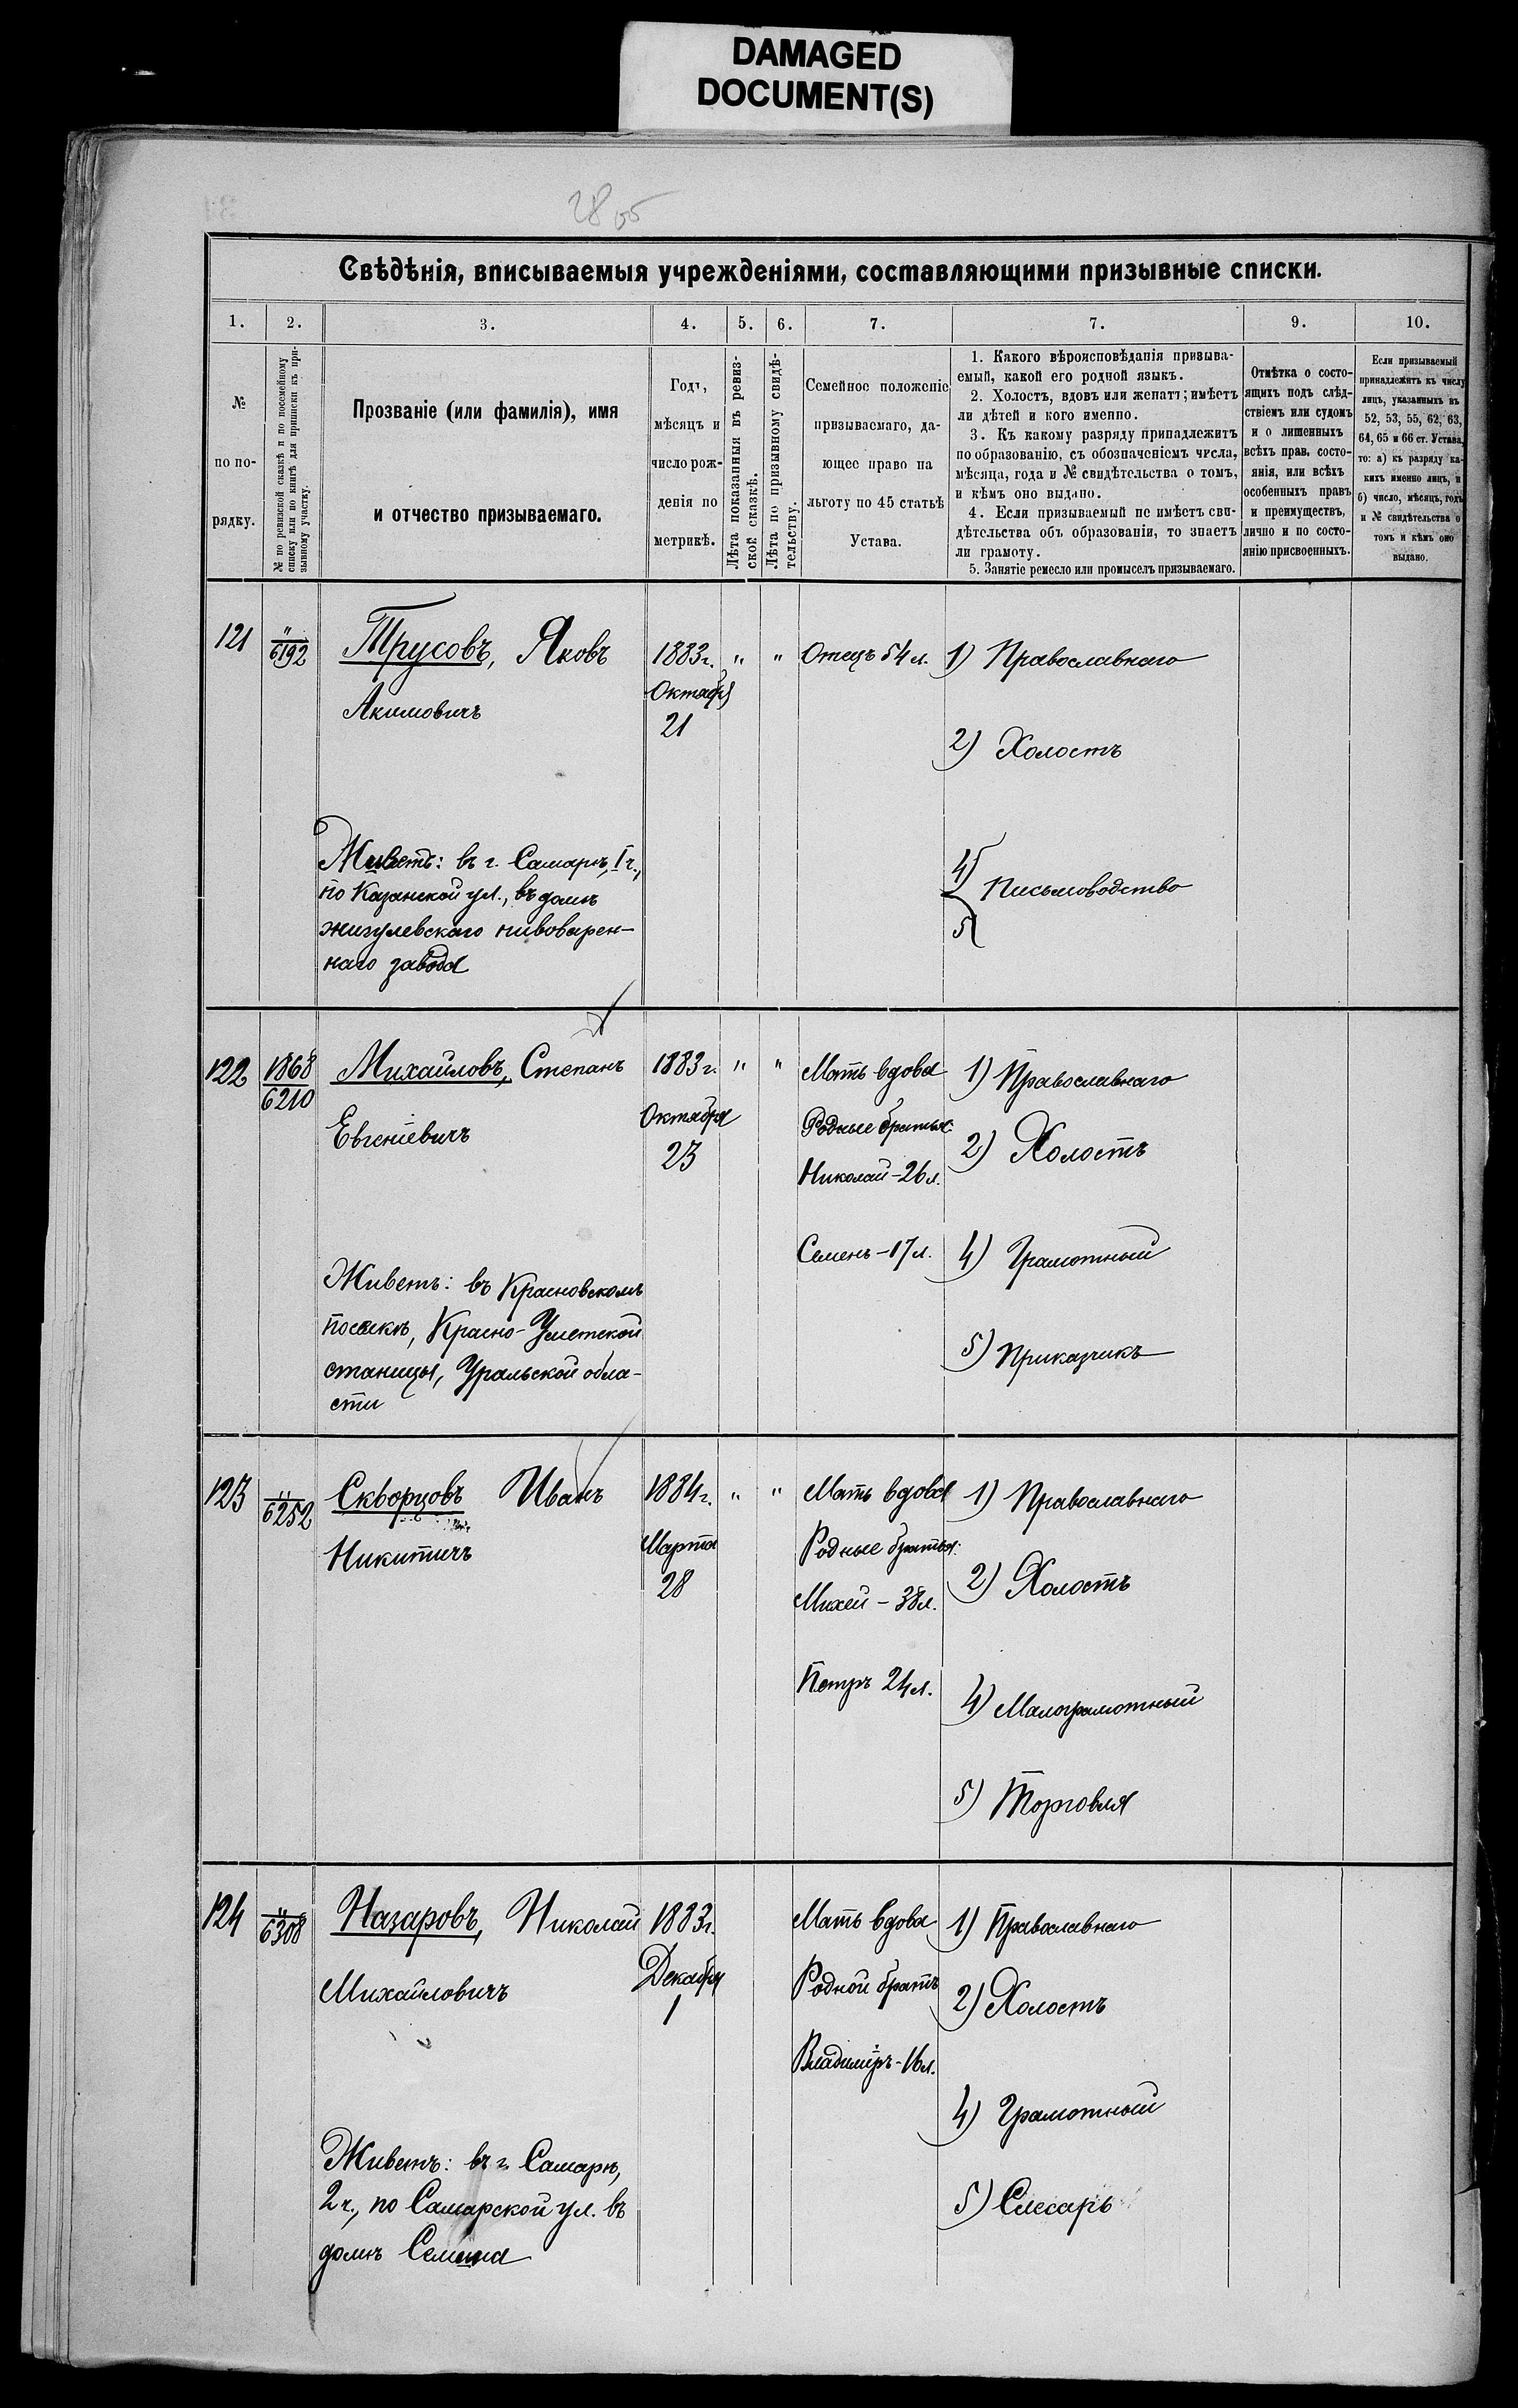 DAMAGED
DOCUMENT(S)
Свѣдѣнія, вписываемыя учрежденіями, составляющими призывные списки.
1. 2. 3. 4. 5. 6. 7. 7. 9. 10.
№
по по-
рядку.
№ по ревизской сказкѣ и по посемейному
списку или по книгѣ для приписки къ при-
зывному участку.
Прозваніе (или фамилія), имя
и отчество призываемаго.
Годъ,
мѣсяцъ и
число рож-
денія по
метрикѣ.
Лѣта показанныя въ ревиз-
ской сказкѣ.
Лѣта по призывному свидѣ-
тельству.
Семейное положеніе
призываемаго, да-
ющее право на
льготу по 45 статьѣ
Устава.
1. Какого вѣроисповѣданія призыва-
емый, какой его родной языкъ.
2. Холостъ, вдовъ или женатъ; имѣетъ
ли дѣтей и кого именно.
3. Къ какому разряду принадлежитъ
по образованію, съ обозначеніемъ числа,
мѣсяца, года и № свидѣтельства о томъ,
и кѣмъ оно выдано.
4. Если призываемый не имѣетъ сви-
дѣтельства объ образованіи, то знаетъ
ли грамоту.
5. Занятіе ремесло или промыселъ призываемаго.
Отмѣтка о состо-
ящихъ подъ слѣд-
ствіемъ или судомъ
и о лишенныхъ
всѣхъ правъ состо-
янія, или всѣхъ
особенныхъ правъ
и преимуществъ,
лично и по состо-
янію присвоенныхъ.
Если призываемый
принадлежитъ къ числу
лицъ, указанныхъ въ
52, 53, 55, 62, 63,
64, 65 и 66 ст. Устава,
то: а) къ разряду ка-
кихъ именно лицъ, и
б) число, мѣсяцъ, годъ
и № свидѣтельства о
томъ и кѣмъ оно
выдано.
121 "/6192 Трусовъ, Яковъ 1883г. " " Отецъ 54 л. 1) Православнаго
Октября
Акимовичъ
21
2) Холостъ
Живетъ: въ г. Самарѣ, I ч.,
по Казанской ул., въ домѣ
жигулевскаго пивоварен-
наго завода
4) 5) Письмоводство
122 1868/6210 Михайловъ, Степанъ 1883г. " " Мать вдова 1) Православнаго
Евгеніевичъ Октября Родные братья:
23 Николай - 26 л. 2) Холостъ
Семенъ - 17 л. 4) Грамотный
Живетъ: въ Красновскомъ
поселкѣ, Красно-Уметской
станицы, Уральской обла-
сти
5) Приказчикъ
123 "/6252 Скворцовъ Иванъ 1884г. " " Мать вдова 1) Православнаго
Никитичъ Марта Родные братья:
28 Михей - 38 л. 2) Холостъ
Петръ 24 л. 4) Малограмотный
5) Торговля
124 "/6308 Назаровъ, Николай 1883г. Мать вдова 1) Православнаго
Михайловичъ Декабря Родной братъ 2) Холостъ
1
Владиміръ - 16 л.
4) Грамотный
Живетъ: въ г. Самарѣ,
2 ч., по Самарской ул. въ
домѣ
5) Слесарь